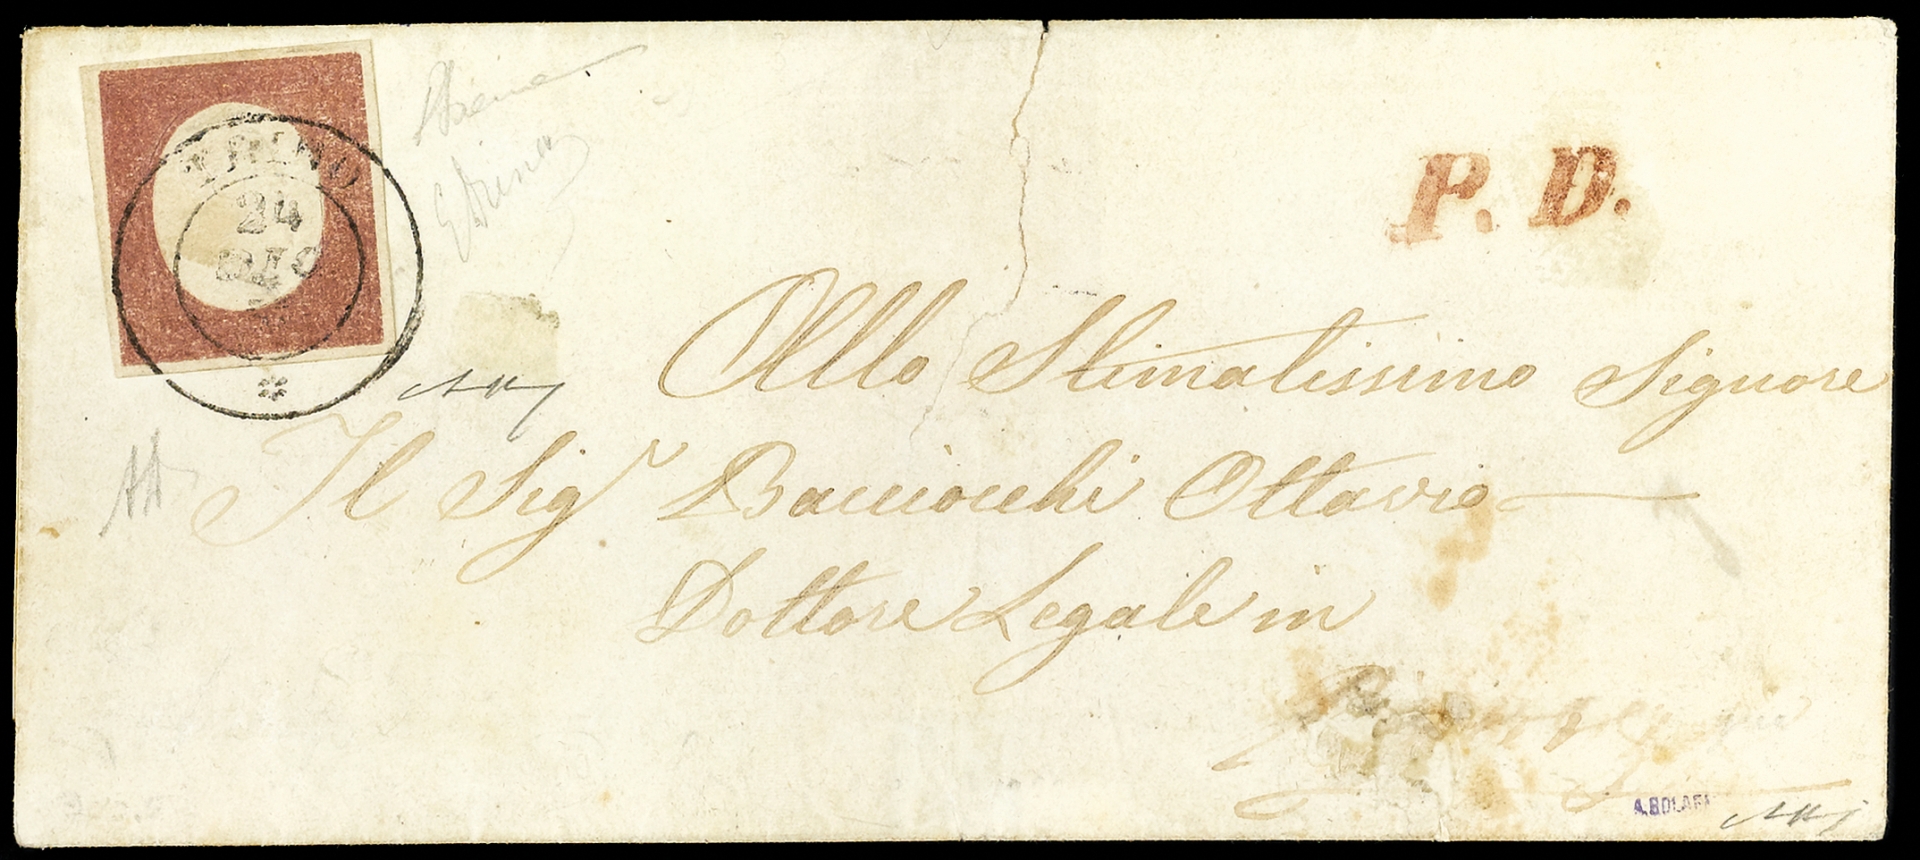 TRINO
24
DIC
P. D.
Allo Stimatissimo Signore
Il Sigr Bacciocchi Ottavio
Dottore Legale in
A. BOLAFFI